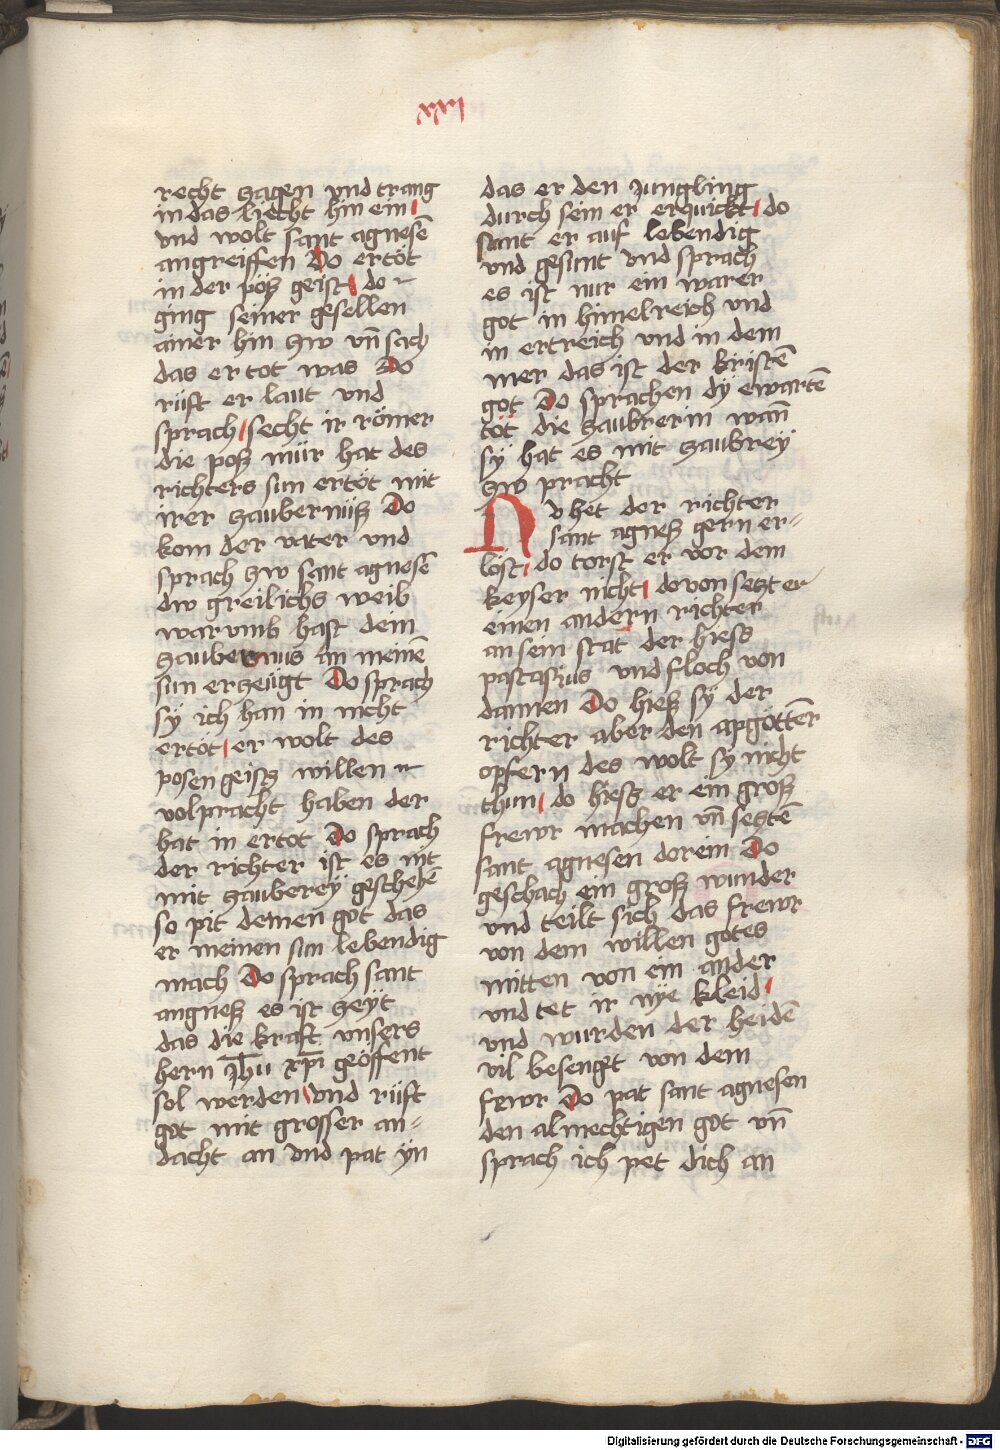 xxi
recht zagen vnd trang
in das liecht hin ein
vnd wolt sant agnesē
angreiffen Do ertöt
in der pöß geist do
ging seiner gesellen
ainer hin zw vn̄ sach
das er tot was Do
rüft er laut vnd
sprach secht ir römer
die poß mür hat des
richters sun ertöt mit
irer zaubernüß Do
kom der vater vnd
sprach zw sant agnesē
dw greilichs weib
war vmb hast dein
zaubernus an meinē
sun erzeügt Do sprach
sÿ ich han in nicht
ertöt er wolt des
posen geists willen
volpracht haben der
hat in ertot Do sprach
der richter ist es nit
mit zauberey geschehē
so pit deinen got das
er meinen sun lebendig
mach Do sprach sant
angneß es ist zeÿt
das die kraft vnsers
hern Jh̄u xp̄i geöffent
sol werden vnd rüft
got mit grosser an=
dacht an vnd pat ÿn
das er den Jungling
durch sein er erquickt do
stant er auf lebendig
vnd gesunt vnd sprach
es ist nur ein warer
got in himelreich vnd
in ertreich vnd in dem
mer das ist der kristē
got Do sprachen dÿ ewartē
töt die zaubrerin wan̄
sÿ hat es mit zaubreÿ
zw pracht
Nv het der richter
sant agneß gern er=
löst do torst er vor dem
keyser nicht do von setzt er
einen andern richter
an sein stat der hiess
pastasius vnd floch von
dannen Do hieß sÿ der
richter aber den apgöttēr
opfern des wolt sÿ nicht
thun do hiess er ein groß
frewr machen vn̄ seztē
sant agnesen dorein Do
geschach ein groß wunder
vnd teilt sich das frewr
von dem willen gotes
mitten von ein ander
vnd tet ir nÿe kleid
vnd wurden der heidē
vil besengt von dem
frwr Do pat sant agnesen
den almechtigen got vn̄
sprach ich pet dich an
Digitalisierung gefördert durch die Deutsche Forschungsgemeinschaft - DFG